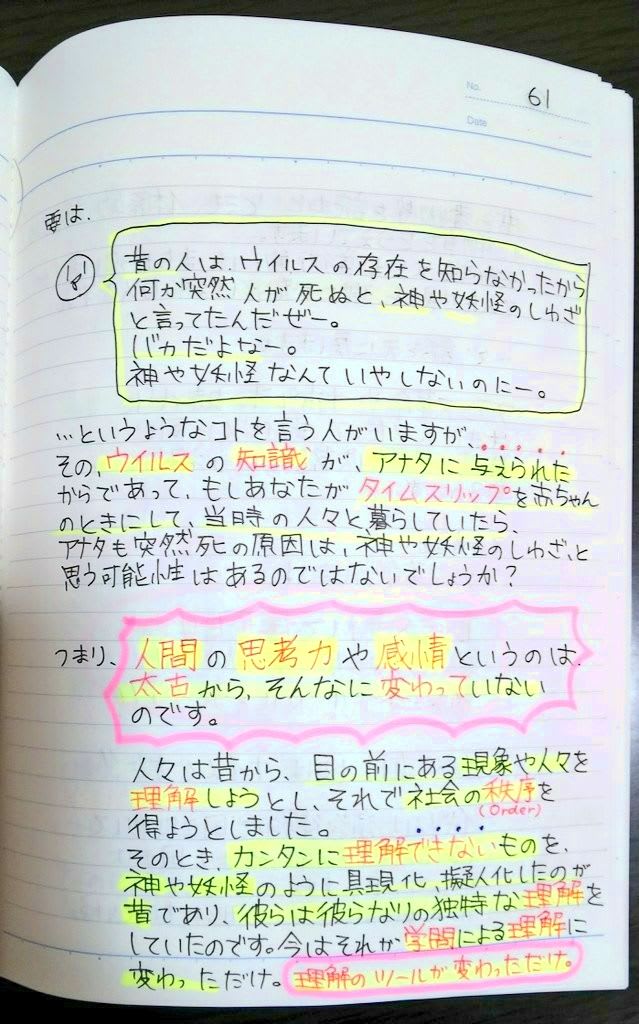 No. 61
Date
要は、
昔の人は、ウイルスの存在を知らなかったから
何か突然人が死ぬと、神や妖怪のしわざ
と言ってたんだぜー。
バカだよなー。
神や妖怪なんていやしないのにー。
…というようなコトを言う人がいますが、
その、ウイルスの知識が、アナタに与えられた
からであって、もしあなたがタイムスリップを赤ちゃん
のときにして、当時の人々と暮らしていたら、
アナタも突然死の原因は、神や妖怪のしわざ、と
思う可能性はあるのではないでしょうか？
つまり、人間の思考力や感情というのは、
太古から、そんなに変わっていない
のです。
人々は昔から、目の前にある現象や人々を
理解しようとし、それで社会の秩序を
(Order)
得ようとしました。
そのとき、カンタンに理解できないものを、
神や妖怪のように具現化、擬人化したのが
昔であり、彼らは彼らなりの独特な理解を
していたのです。今はそれが学問による理解に
変わっただけ。理解のツールが変わっただけ。